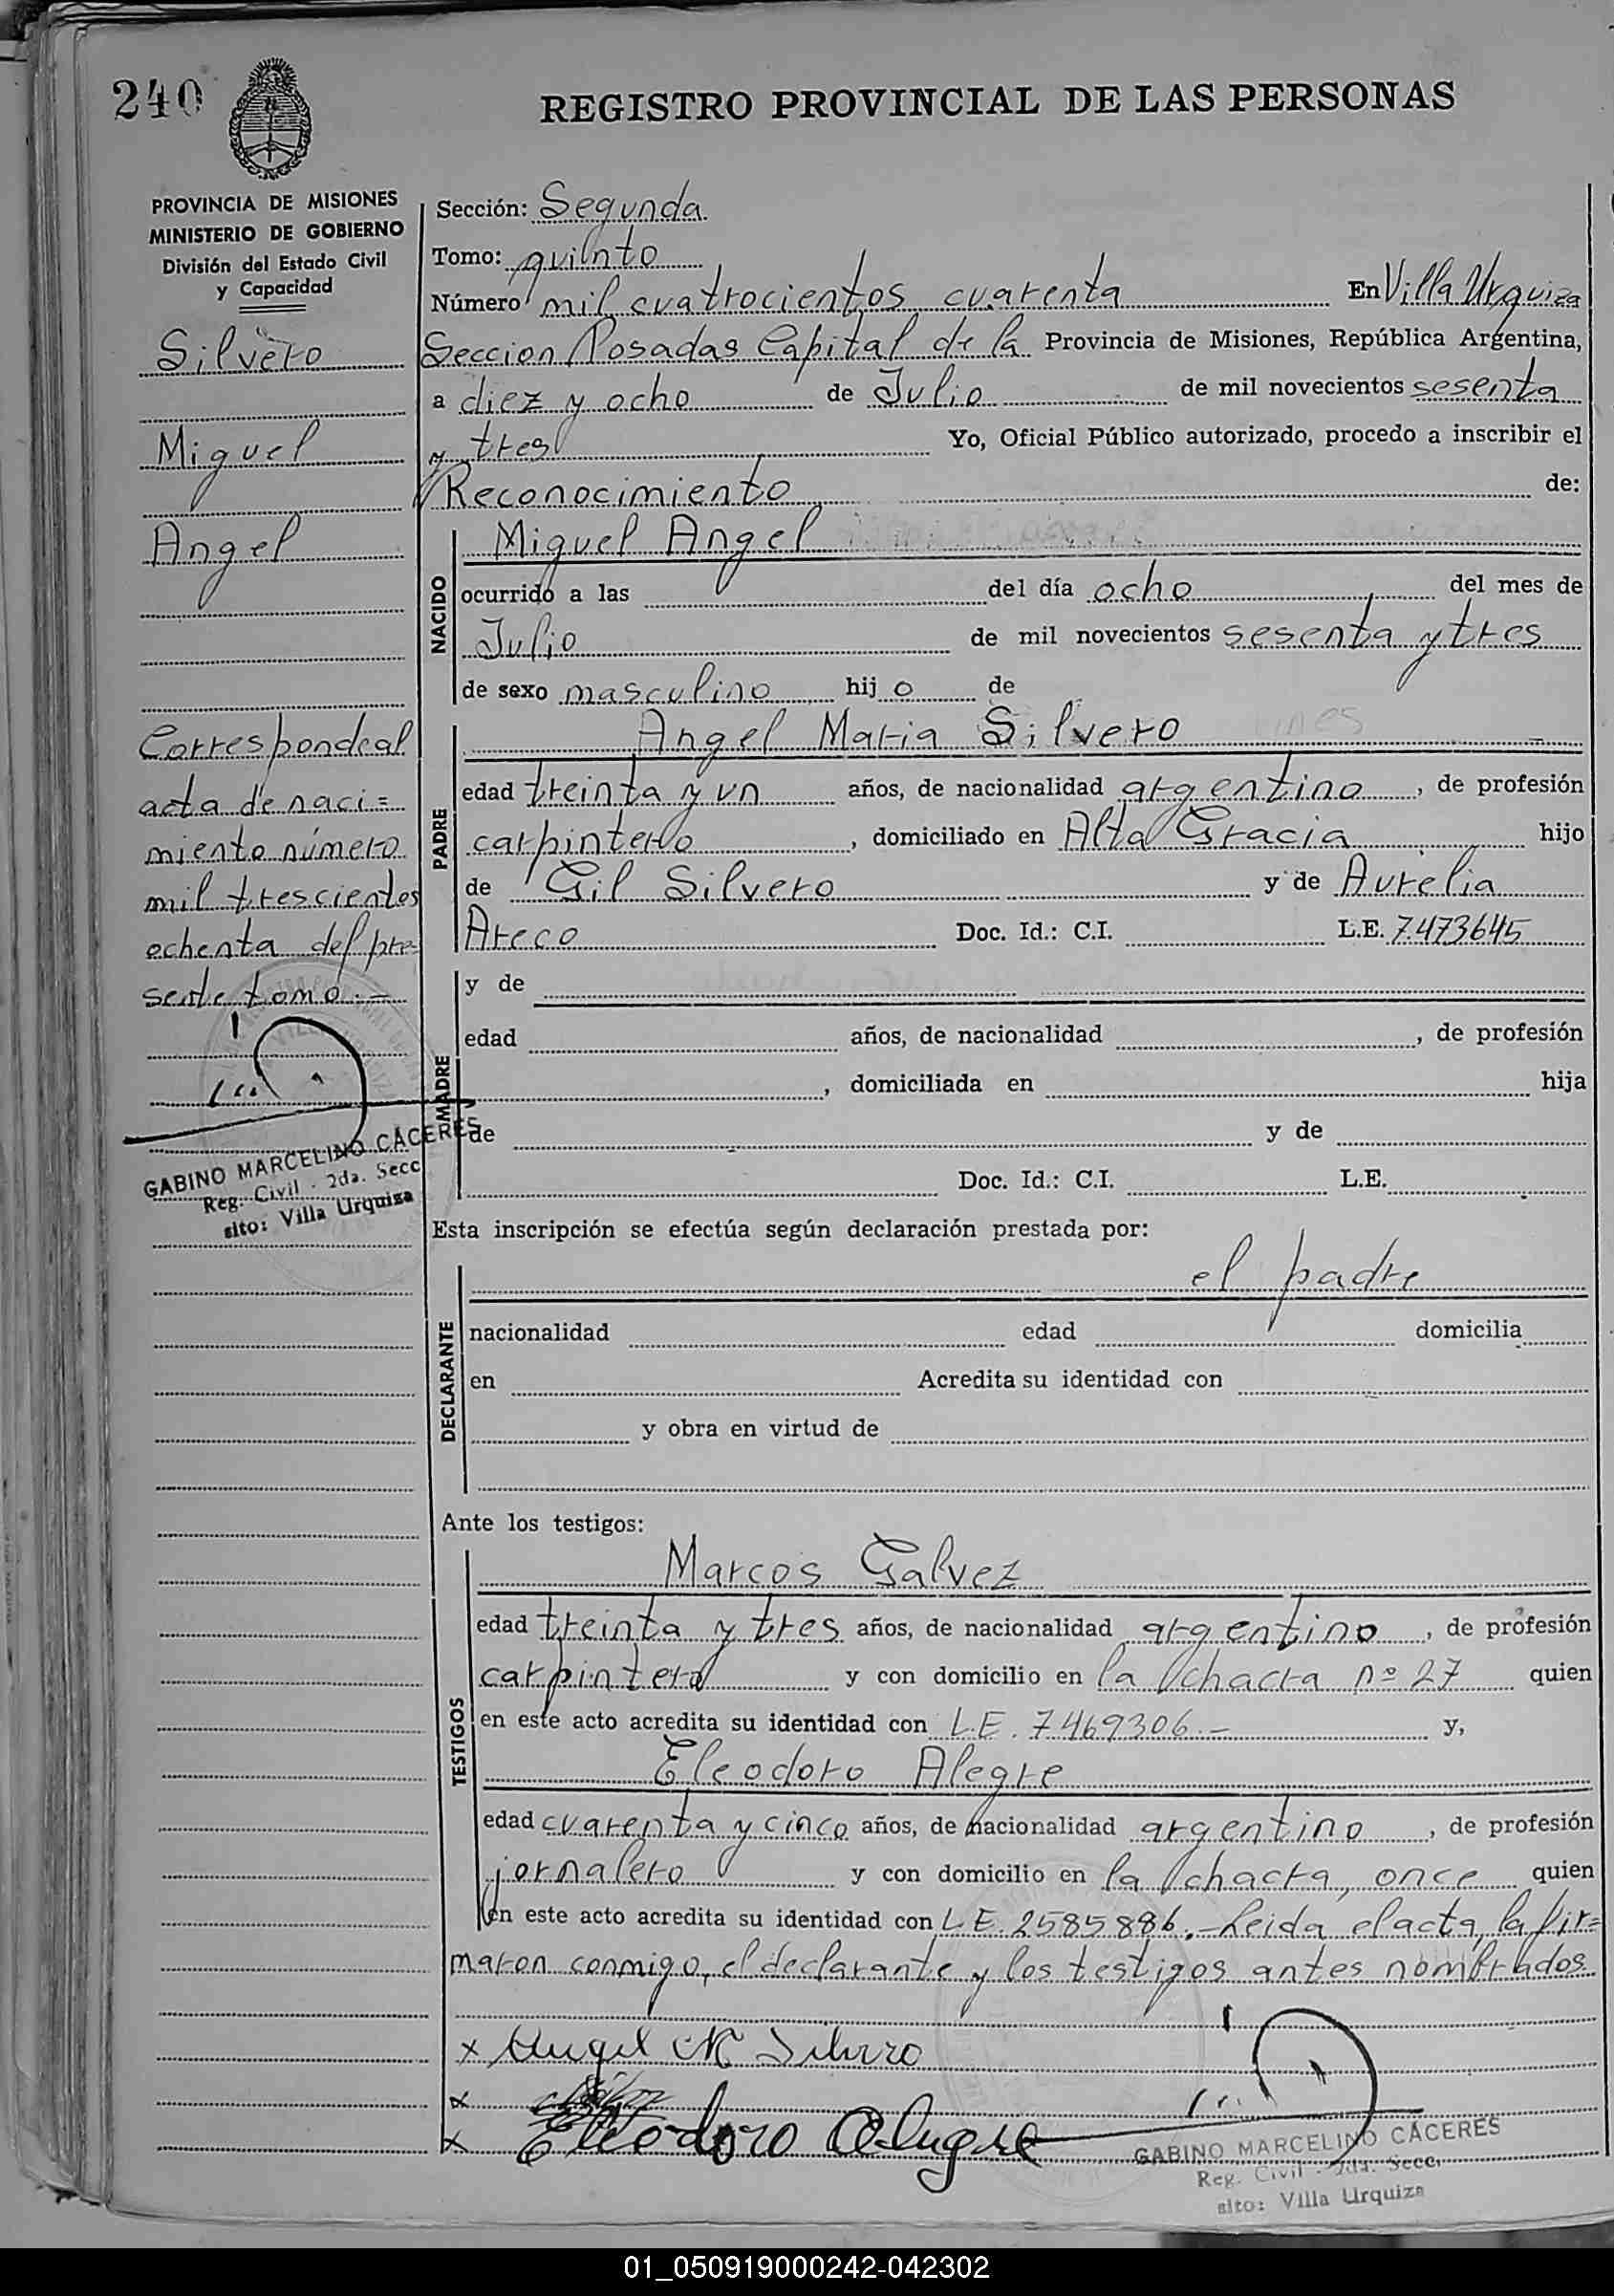 240
REGISTRO PROVINCIAL DE LAS PERSONAS
PROVINCIA DE MISIONES
MINISTERIO DE GOBIERNO
División del Estado Civil
y Capacidad
Silvero
Miguel
Angel
Corresponde al
acta de naci=
miento número
mil trescientos
ochenta del pre-
sente tomo.-
GABINO MARCELINO CÁCERES
Reg. Civil - 2da. Secc
sito: Villa Urquiza
Sección: Segunda
Tomo: quinto
Número mil cuatrocientos cuarenta En Villa Urquiza
Seccion Posadas Capital de la Provincia de Misiones, República Argentina,
a diez y ocho de Julio de mil novecientos sesenta
y tres Yo, Oficial Público autorizado, procedo a inscribir el
Reconocimiento de:
NACIDO
Miguel Angel
ocurrido a las del día ocho del mes de
Julio de mil novecientos sesenta y tres
de sexo masculino hijo de
PADRE
Angel Maria Silvero
edad treinta y un años, de nacionalidad argentino, de profesión
carpintero, domiciliado en Alta Gracia hijo
de Gil Silvero y de Aurelia
Areco Doc. Id.: C.I. L.E. 7.473645
MADRE
y de
edad años, de nacionalidad , de profesión
, domiciliada en hija
de y de
Doc. Id.: C.I. L.E.
Esta inscripción se efectúa según declaración prestada por:
DECLARANTE
el padre
nacionalidad edad domicilia
en Acredita su identidad con
y obra en virtud de
Ante los testigos:
TESTIGOS
Marcos Galvez
edad treinta y tres años, de nacionalidad argentino, de profesión
carpintero y con domicilio en la chacra nº 27 quien
en este acto acredita su identidad con L.E. 7469306.- y,
Eleodoro Alegre
edad cuarenta y cinco años, de nacionalidad argentino, de profesión
jornalero y con domicilio en la chacra, once quien
en este acto acredita su identidad con L.E. 2585886.- Leida el acta, la fir=
maron conmigo, el declarante y los testigos antes nombrados
x Angel M Silvero
x
x Eleodoro Alegre
GABINO MARCELINO CÁCERES
Reg. Civil - 2da. Secc.
sito: Villa Urquiza
01_050919000242-042302